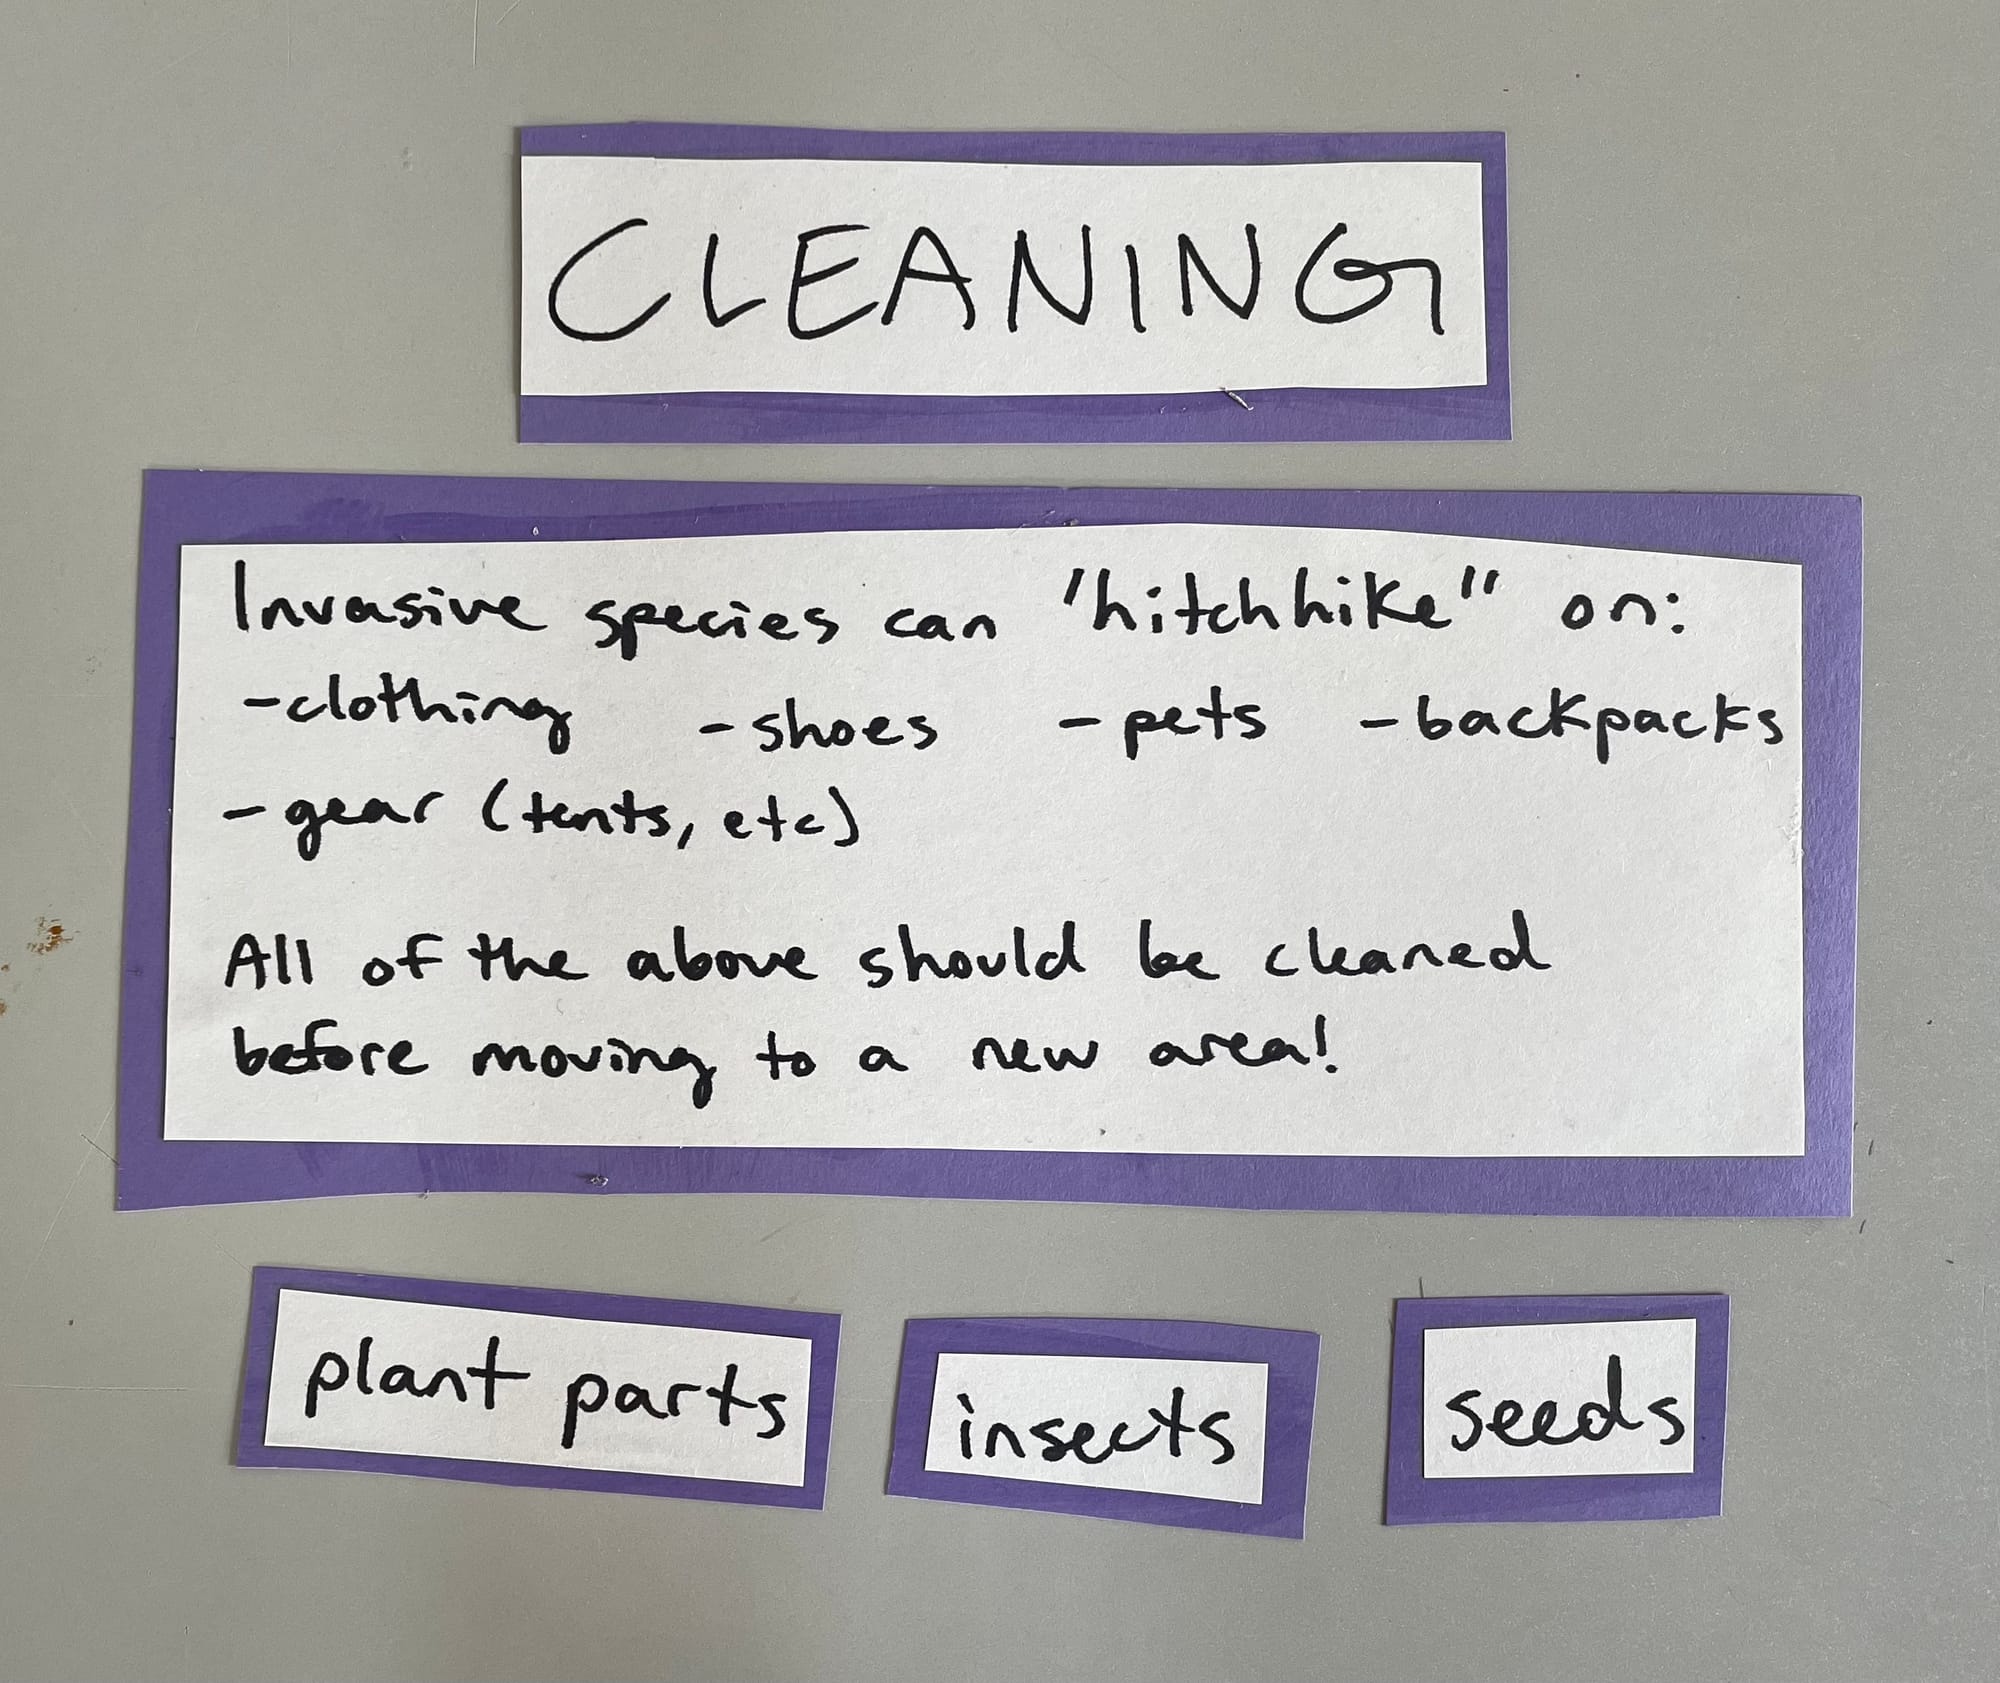 CLEANING
Invasive species can "hitchhike" on:
-clothing -shoes -pets -backpacks
-gear (tents, etc)
All of the above should be cleaned
before moving to a new area!
plant parts
insects
seeds